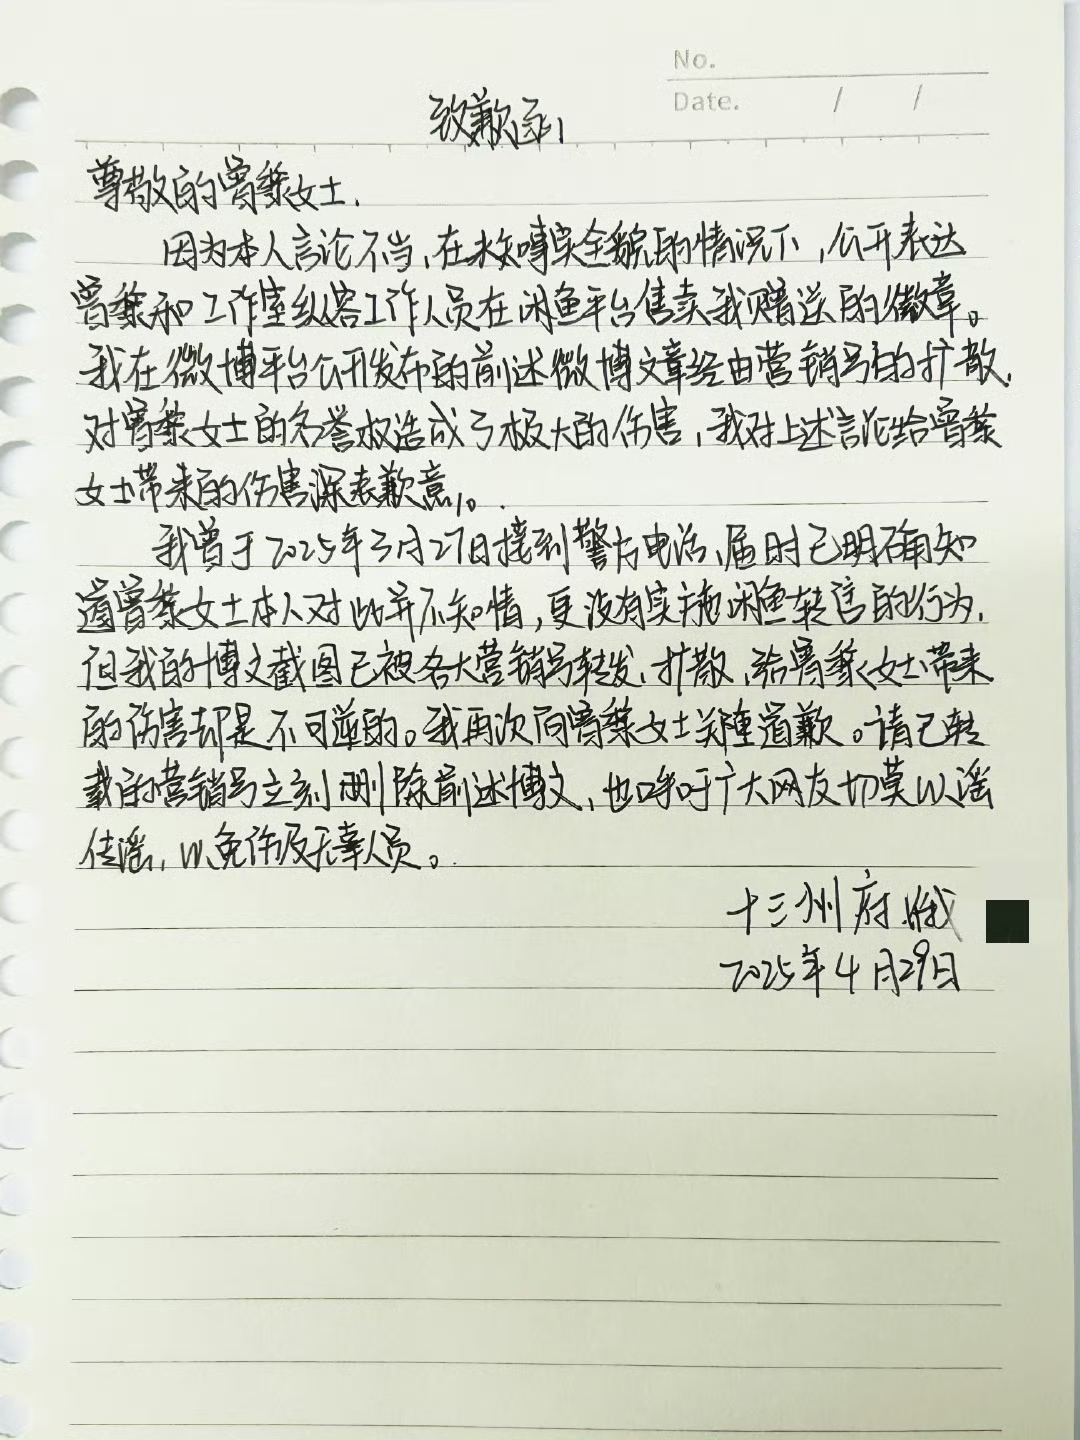 No.
Date. / /
致歉函
尊敬的曾黎女士,
因为本人言论不当,在未知事实全貌的情况下,公开表达
曾黎和工作室纵容工作人员在闲鱼平台售卖我赠送的徽章。
我在微博平台公开发布的前述微博文章经由营销号的扩散,
对曾黎女士的名誉权造成了极大的伤害,我对上述言论给曾黎
女士带来的伤害深表歉意。
我曾于2025年3月27日接到警方电话,届时已明确知
道曾黎女士本人对此并不知情,更没有实施闲鱼转卖的行为,
但我的博文截图已被各大营销号转发、扩散,给曾黎女士带来
的伤害却是不可逆的。我再次向曾黎女士郑重道歉。请已转
载的营销号立刻删除前述博文,也呼吁广大网友切莫以谣
传谣,以免伤及无辜人员。
十三州府
2025年4月29日